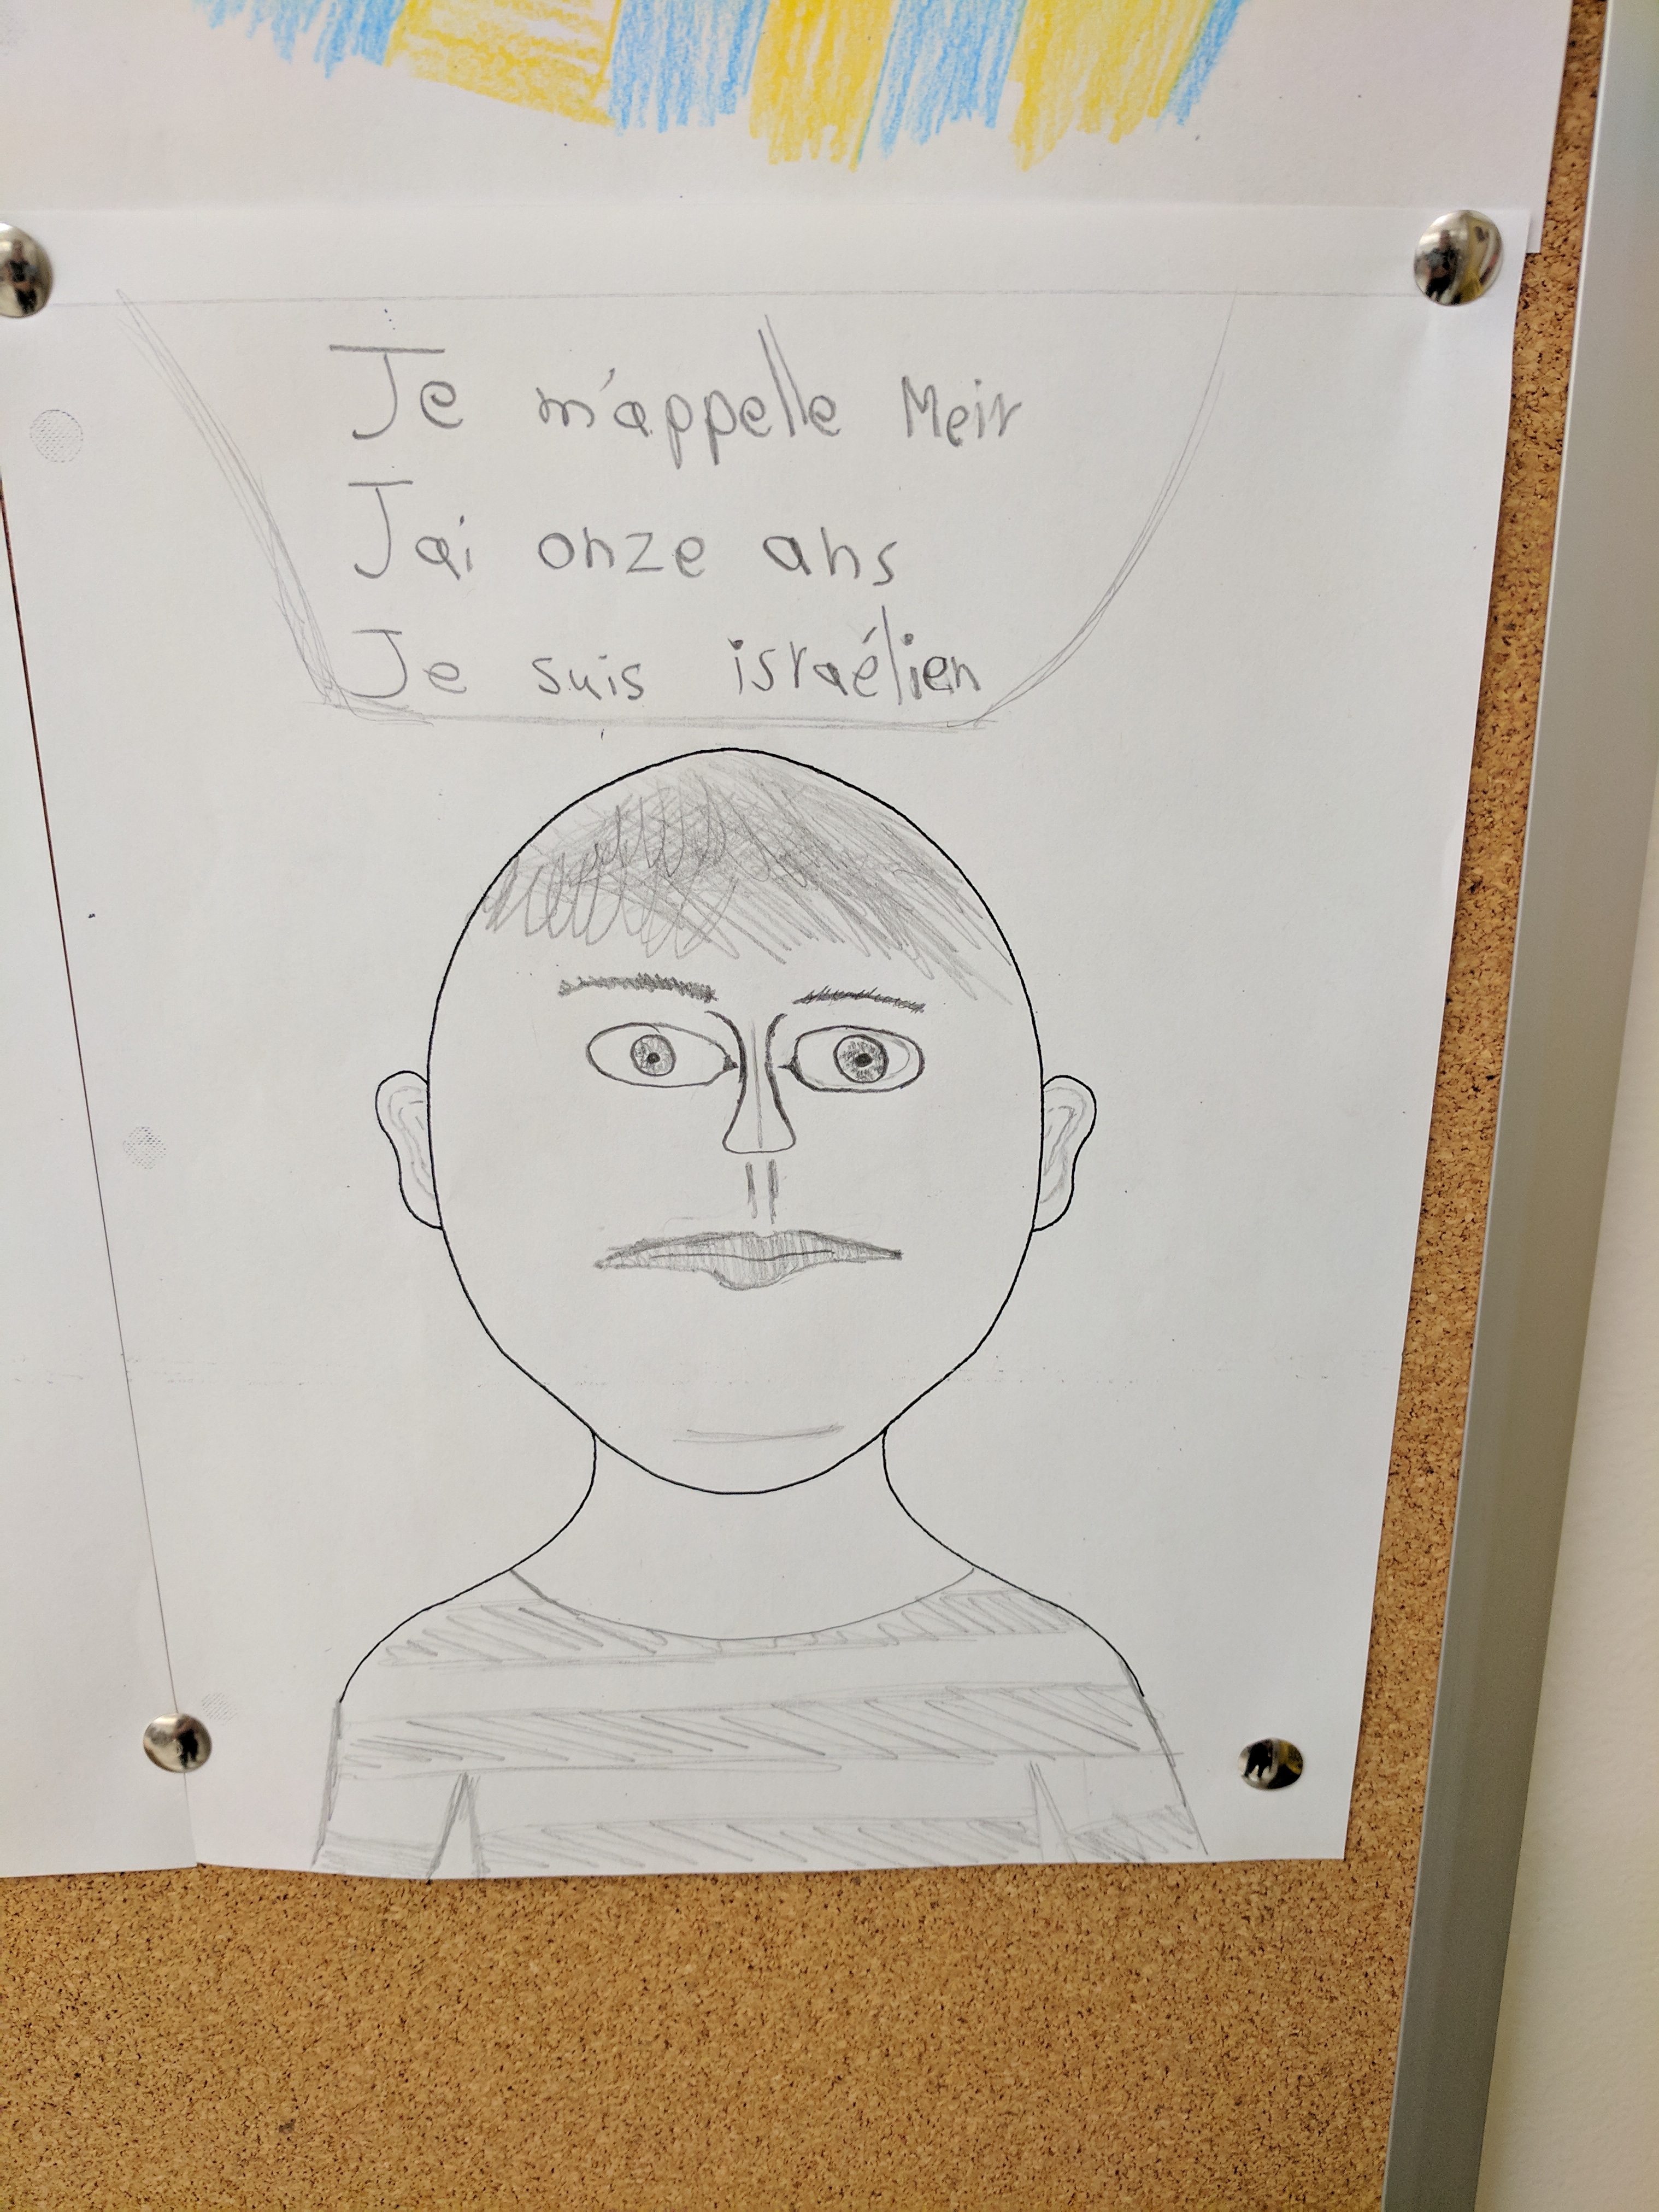 Je m'appelle Meir
Jai onze ans
Je suis israélien